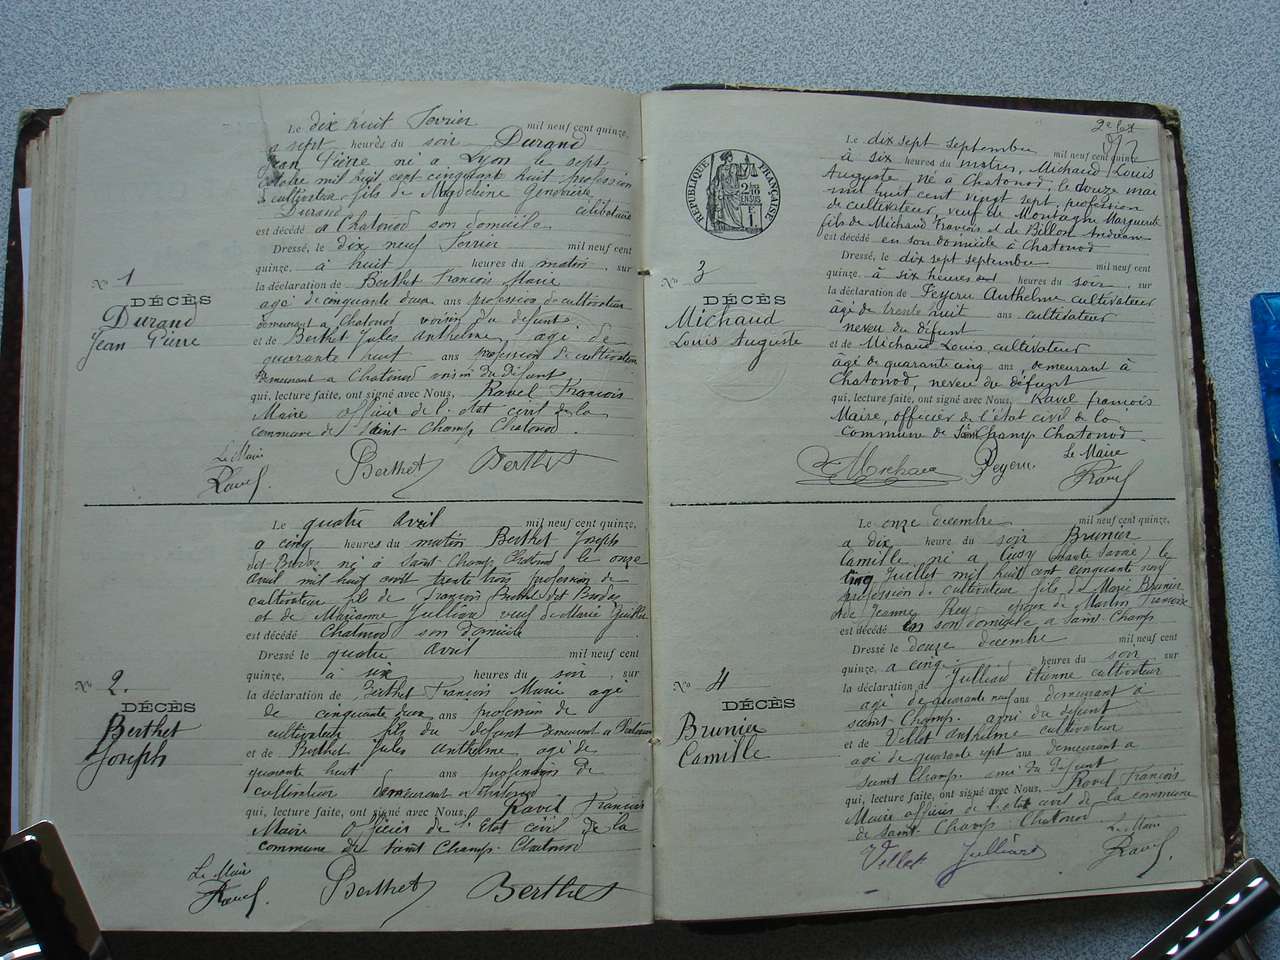 Le dix huit Fevrier mil neuf cent quinze,
a sept heures du soir Durand
Jean Pierre né a Lyon le sept
octobre mil huit cent cinquante huit profession
cultivateur fils de Magdeleine Genevieve
Durand célibataire
est décédé a Chatonod son domicile
Dressé, le dix neuf Fevrier mil neuf cent
quinze, à huit heures du matin, sur
la déclaration de Berthet François Marie
agé de cinquante deux ans profession de cultivateur
demeurant a Chatonod voisin du defunt
et de Berthet Jules Anthelme agé de
quarante huit ans profession de cultivateur
demeurant a Chatonod voisin du défunt
qui, lecture faite, ont signé avec Nous, Ravel François
Maire officier de l'etat civil de la
commune de Saint Champ Chatonod.
No 1
DÉCÈS
Durand
Jean Pierre
Le Maire
Ravel
Berthet
Berthet
Le quatre Avril mil neuf cent quinze,
a cinq heures du matin Berthet Joseph
dit Bordaz né à Saint Champ Chatonod le onze
avril mil huit cent trente trois profession de
cultivateur fils de François Berthet dit Bordaz
et de Marianne Jullian veuf de Marie
est décédé Chatonod son domicile
Dressé le quatre avril mil neuf cent
quinze, à six heures du soir, sur
la déclaration de Berthet François Marie agé
de cinquante deux ans profession de
cultivateur fils du défunt demeurant a Chatonod
et de Berthet Jules Anthelme agé de
quarante huit ans profession de
cultivateur demeurant a Chatonod
qui, lecture faite, ont signé avec Nous, Ravel François
Maire Officier de l'Etat civil de la
commune de Saint Champ-Chatonod
No 2.
DÉCÈS
Berthet
Joseph
Le Maire
Ravel
Berthet
Berthet
RÉPUBLIQUE FRANÇAISE
Le dix sept septembre mil neuf cent quinze
à six heures du matin, Michaud Louis
Auguste né à Chatonod, le douze mai
mil huit cent vingt sept, profession
de cultivateur, veuf de Montagne Marguerite
fils de Michaud François et de Billon
est décédé en son domicile à Chatonod
Dressé, le dix sept septembre mil neuf cent
quinze, à six heures du soir, sur
la déclaration de Peyeru Anthelme cultivateur
âgé de trente huit ans cultivateur
neveu du défunt
et de Michaud Louis, cultivateur
âgé de quarante cinq ans, demeurant à
Chatonod, neveu du défunt
qui, lecture faite, ont signé avec Nous, Ravel François
Maire, officier de l'état civil de la
commune de Saint Champ Chatonod.
No 3
DÉCÈS
Michaud
Louis Auguste
Michaud
Peyeru
Le Maire
Ravel
Le onze Decembre mil neuf cent quinze,
a dix heure du soir Brunier
Camille né a (haute Savoie) le
cinq Juillet mil huit cent cinquante
profession de cultivateur fils de Marie Brunier
de Jeanne Rey époux de Martin Françoise
est décédé en son domicile a Saint Champ
Dressé le douze decembre mil neuf cent
quinze, a cinq heures du soir sur
la déclaration de Julliand Etienne cultivateur
agé de quarante neuf ans demeurant à
Saint Champ. ami du défunt
et de Villet Anthelme cultivateur
agé de quarante sept ans demeurant a
Saint Champ ami du défunt
qui, lecture faite, ont signé avec Nous, Ravel François
Maire officier de l'etat civil de la commune
de Saint Champ-Chatonod
No 4
DÉCÈS
Brunier
Camille
Villet
Julliand
Le Maire
Ravel